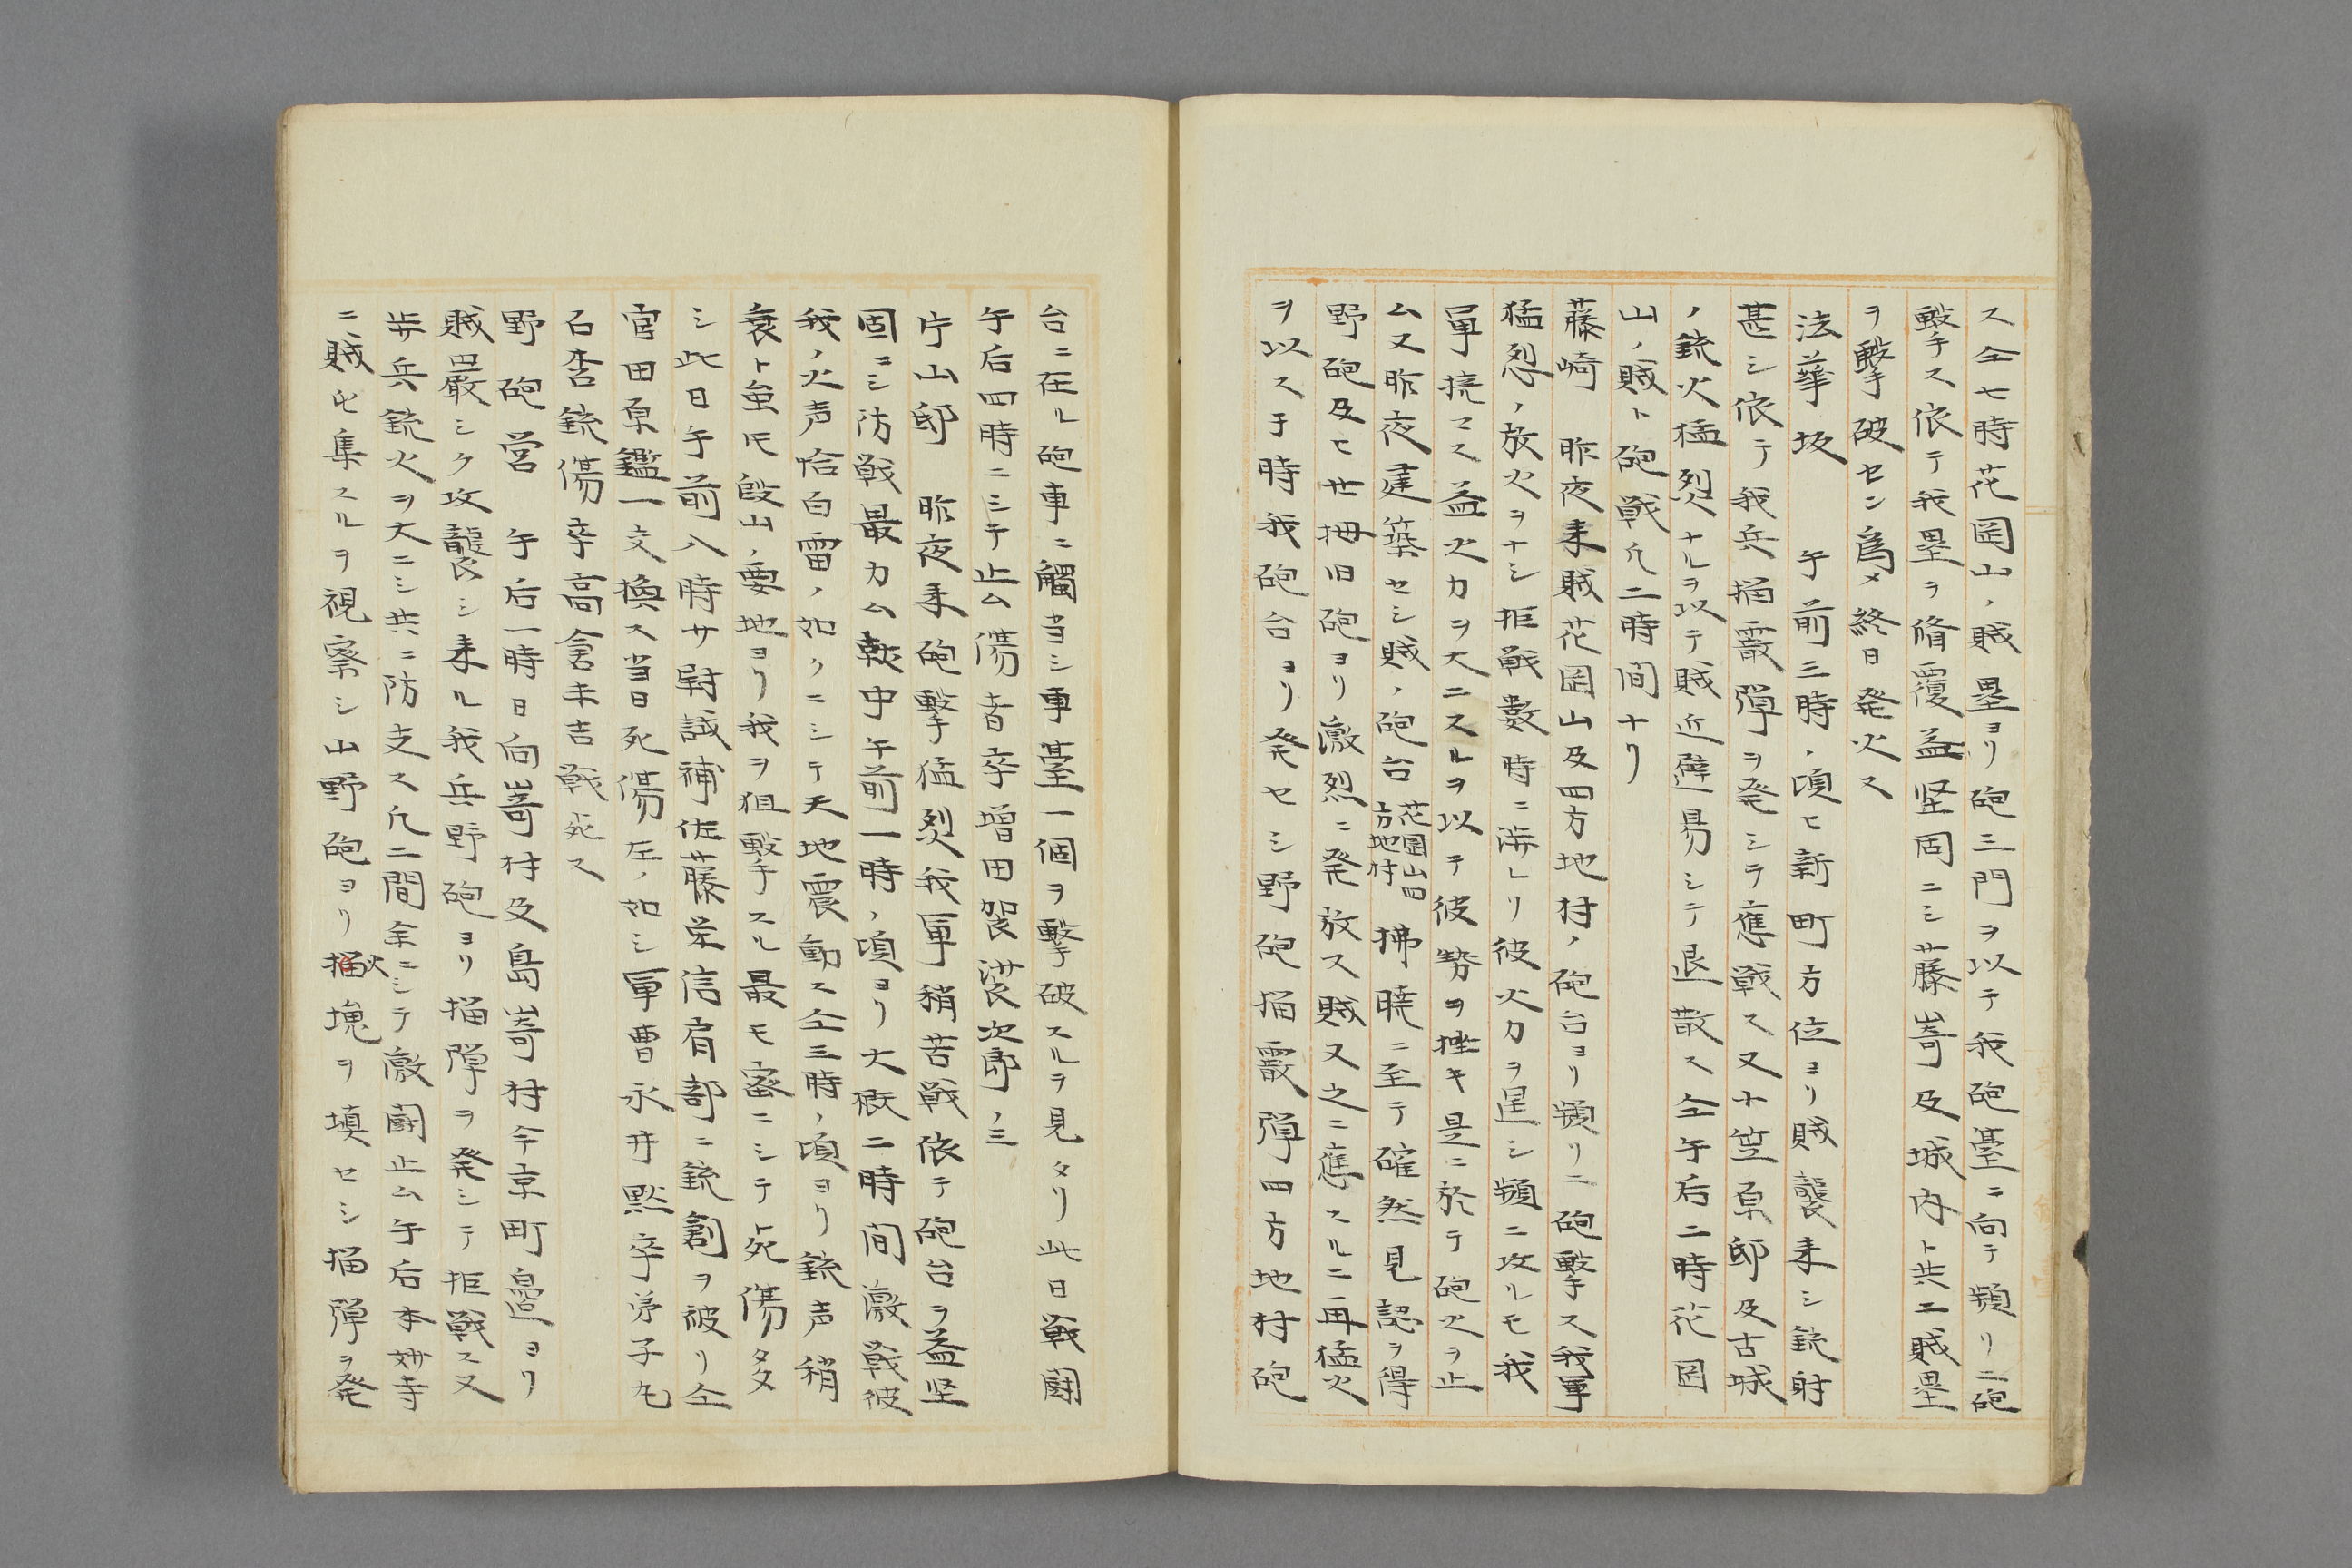 ス仝七時花岡山ノ賊塁ヨリ砲三門ヲ以テ我砲臺ニ向テ頻リニ砲
撃ス依テ我塁ヲ脩覆益坚固ニシ藤嵜及城内ト共ニ賊塁
ヲ撃破セン為メ終日発火ス
法華坂　午前三時ノ頃ヒ新町方位ヨリ賊襲来シ銃射
甚シ依テ我兵榴霰弾ヲ発シテ應戦ス又小笠原邸及古城
ノ銃火猛烈ナルヲ以テ賊近辟易シテ退散ス仝午后二時花岡
山ノ賊ト砲戦凡二時間ナリ
藤崎　昨夜来賊花岡山及四方地村ノ砲台ヨリ頻リニ砲撃ス我軍
猛烈ノ放火ヲナシ拒戦数時ニ渉レリ彼火力ヲ逞シ頻ニ攻ルモ我
軍撓マス益火力ヲ大ニスルヲ以テ彼勢ヲ挫キ是ニ於テ砲火ヲ止
ム又昨夜建築セシ賊ノ砲台花岡山四方地村拂暁ニ至テ確然見認ヲ得
野砲及ヒ廿拇臼砲ヨリ激烈ニ発放ス賊又之ニ應スルニ再猛火
ヲ以ス于時我砲台ヨリ発セシ野砲榴霰弾四方地村砲
台ニ在ル砲車ニ觸当シ車臺一個ヲ撃破スルヲ見タリ此日戦闘
午后四時ニシテ止ム傷者卒増田袈裟次郎ノ三
片山邸　昨夜来砲撃猛烈我軍稍苦戦依テ砲台ヲ益坚
固ニシ防戦最力ム就中午前一時ノ頃ヨリ大概二時間激戦彼
我ノ火声恰百雷ノ如クニシテ天地震動ス仝三時ノ頃ヨリ銃声稍
衰ト虽モ段山ノ要地ヨリ我ヲ狙撃スル最モ密ニシテ死傷多
シ此日午前八時少尉試補佐藤栄信肩部ニ銃創ヲ被リ仝
官田原鑑一交換ス当日死傷左ノ如シ軍曹永井黙卒弟子丸
石杏銃傷卒高倉末吉戦死ス
野砲営　午后一時日向嵜村及島嵜村今京町邉ヨリ
賊巌シク攻襲シ来ル我兵野砲ヨリ榴弾ヲ発シテ拒戦ス又
歩兵銃火ヲ大ニシ共ニ防支ス凡二間余ニシテ激闘止ム午后本妙寺
ニ賊屯集スルヲ視察シ山野砲ヨリ榴火塊ヲ填セシ榴弾ヲ発